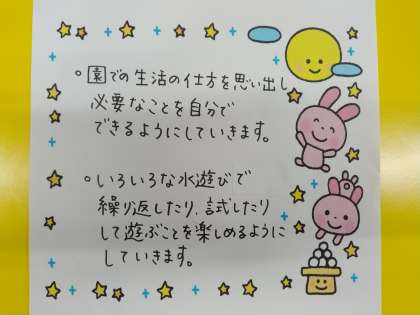 ○園での生活の仕方を思い出し
必要なことを自分で
できるようにしていきます。
○いろいろな水遊びで
繰り返したり、試したり
して遊ぶことを楽しめるように
していきます。